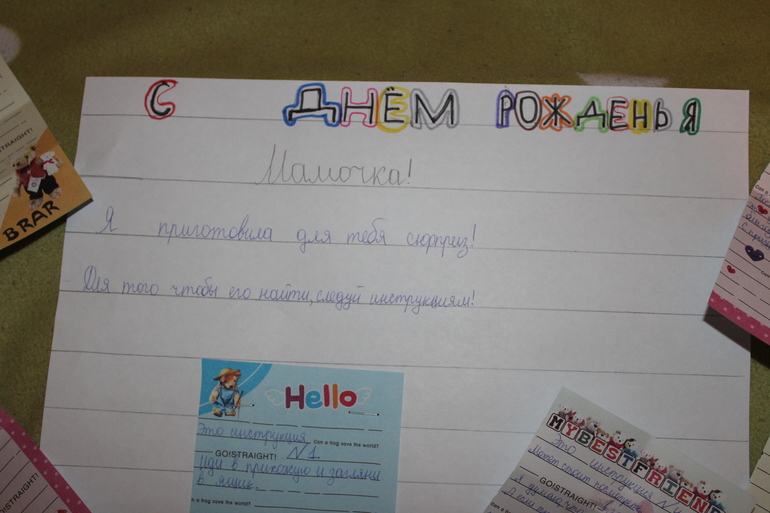 С ДНЁМ РОЖДЕНЬЯ
Мамочка!
Я приготовила для тебя сюрприз!
Для того чтобы его найти, следуй инструкциям!
STRAIGHT!
BRAR
Hello
Это инструкция
Can a frog save the world?
GO!STRAIGHT! №1.
Иди в прихожую и загляни
в ящик.
s a frog save the world?
MYBESTFRIEND
Это инструкция №
Может стоит
GO!STRAIGHT!
я думаю,